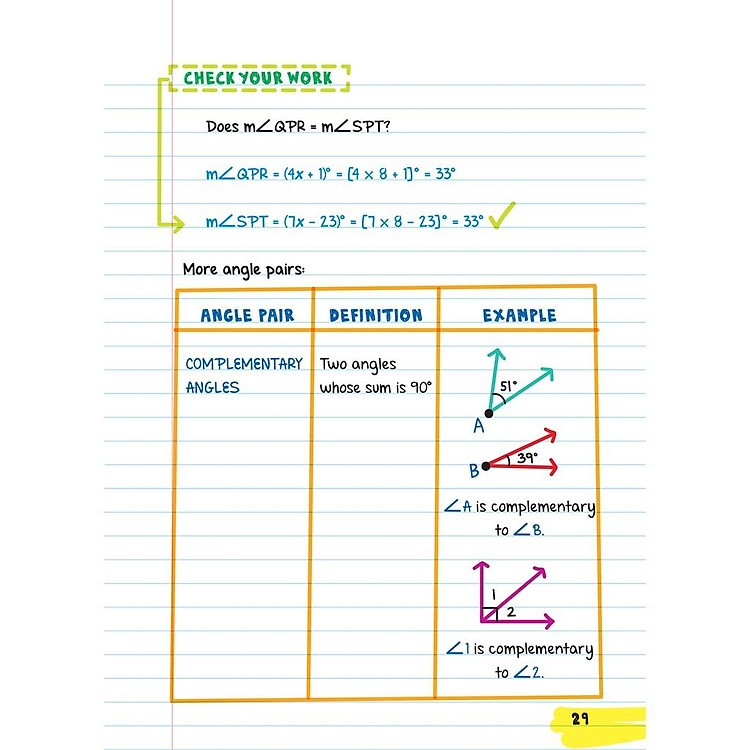 CHECK YOUR WORK
Does m∠QPR = m∠SPT?
m∠QPR = (4x + 1)° = [4 × 8 + 1]° = 33°
m∠SPT = (7x − 23)° = [7 × 8 − 23]° = 33° ✓
More angle pairs:
ANGLE PAIR DEFINITION EXAMPLE
COMPLEMENTARY
ANGLES
Two angles
whose sum is 90°
51°
A
B
39°
∠A is complementary
to ∠B.
1
2
∠1 is complementary
to ∠2.
29